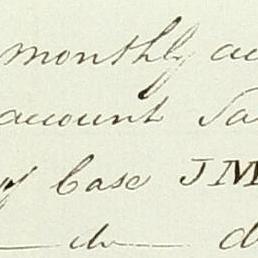 monthly ac
account Sa
of Case JM
do d